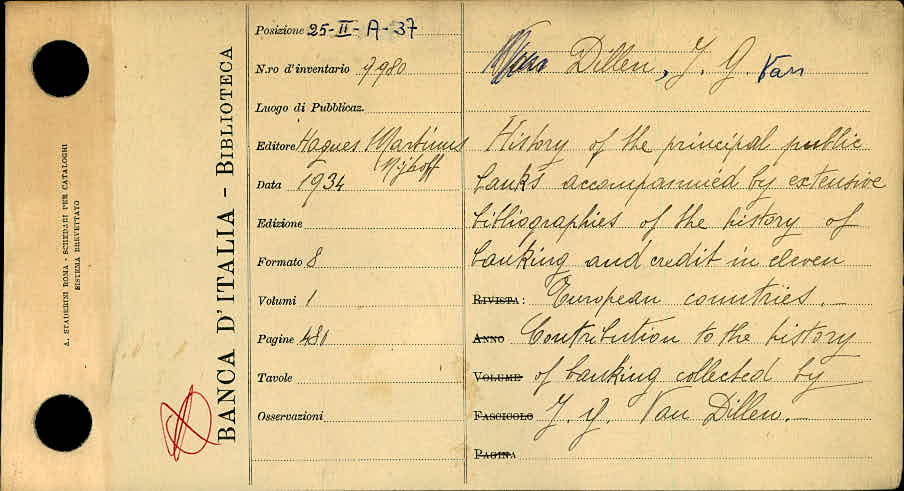 A. STADERINI ROMA - SCHEDARI PER CATALOGHI
SISTEMA BREVETTATO
BANCA D'ITALIA - BIBLIOTECA
Posizione 25-II-A-37
N.ro d'inventario 7980
Luogo di Pubblicaz.
Editore Hagues Martinus
Nijhoff
Data 1934
Edizione
Formato 8
Volumi 1
Pagine 480
Tavole
Osservazioni
Van Dillen, J. G. Van
History of the principal public
banks accompannied by extensive
bibliographies of the history of
banking and credit in eleven
RIVISTA: European countries. -
ANNO Contribution to the history
VOLUME of banking collected by
FASCICOLO J. G. Van Dillen. -
PAGINA